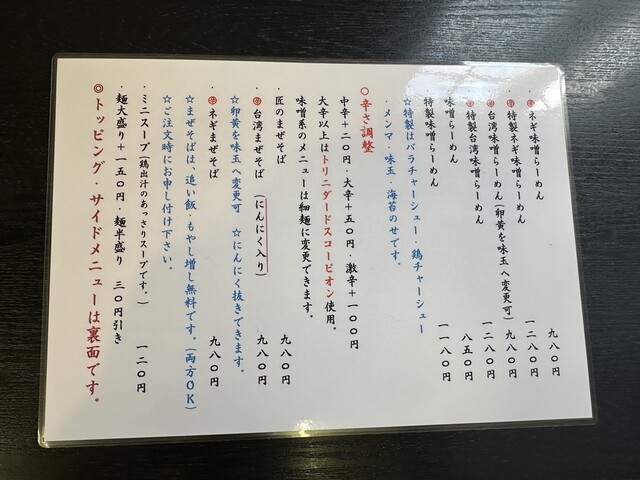 ・ネギ味噌らーめん 九八〇円
・特製ネギ味噌らーめん 一二八〇円
・台湾味噌らーめん(卵黄を味玉へ変更可) 九八〇円
・特製台湾味噌らーめん 一二八〇円
・味噌らーめん 八五〇円
・特製味噌らーめん 一一八〇円
☆特製はバラチャーシュー・鶏チャーシュー
・メンマ・味玉・海苔のせです。
○辛さ調整
中辛+二〇円・大辛+五〇円・激辛+一〇〇円
大辛以上はトリニダードスコーピオン使用。
味噌系のメニューは細麺に変更できます。
・匠のまぜそば 九八〇円
・台湾まぜそば (にんにく入り) 九八〇円
☆卵黄を味玉へ変更可 ☆にんにく抜きできます。
・ネギまぜそば 九八〇円
☆まぜそばは、追い飯・もやし増し無料です。(両方OK)
☆ご注文時にお申し付け下さい。
・ミニスープ(鶏出汁のあっさりスープです。) 一二〇円
・麺大盛り+一五〇円・麺半盛り 三〇円引き
◎トッピング・サイドメニューは裏面です。